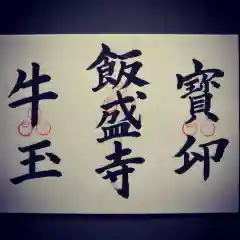 寶印
飯盛寺
牛玉